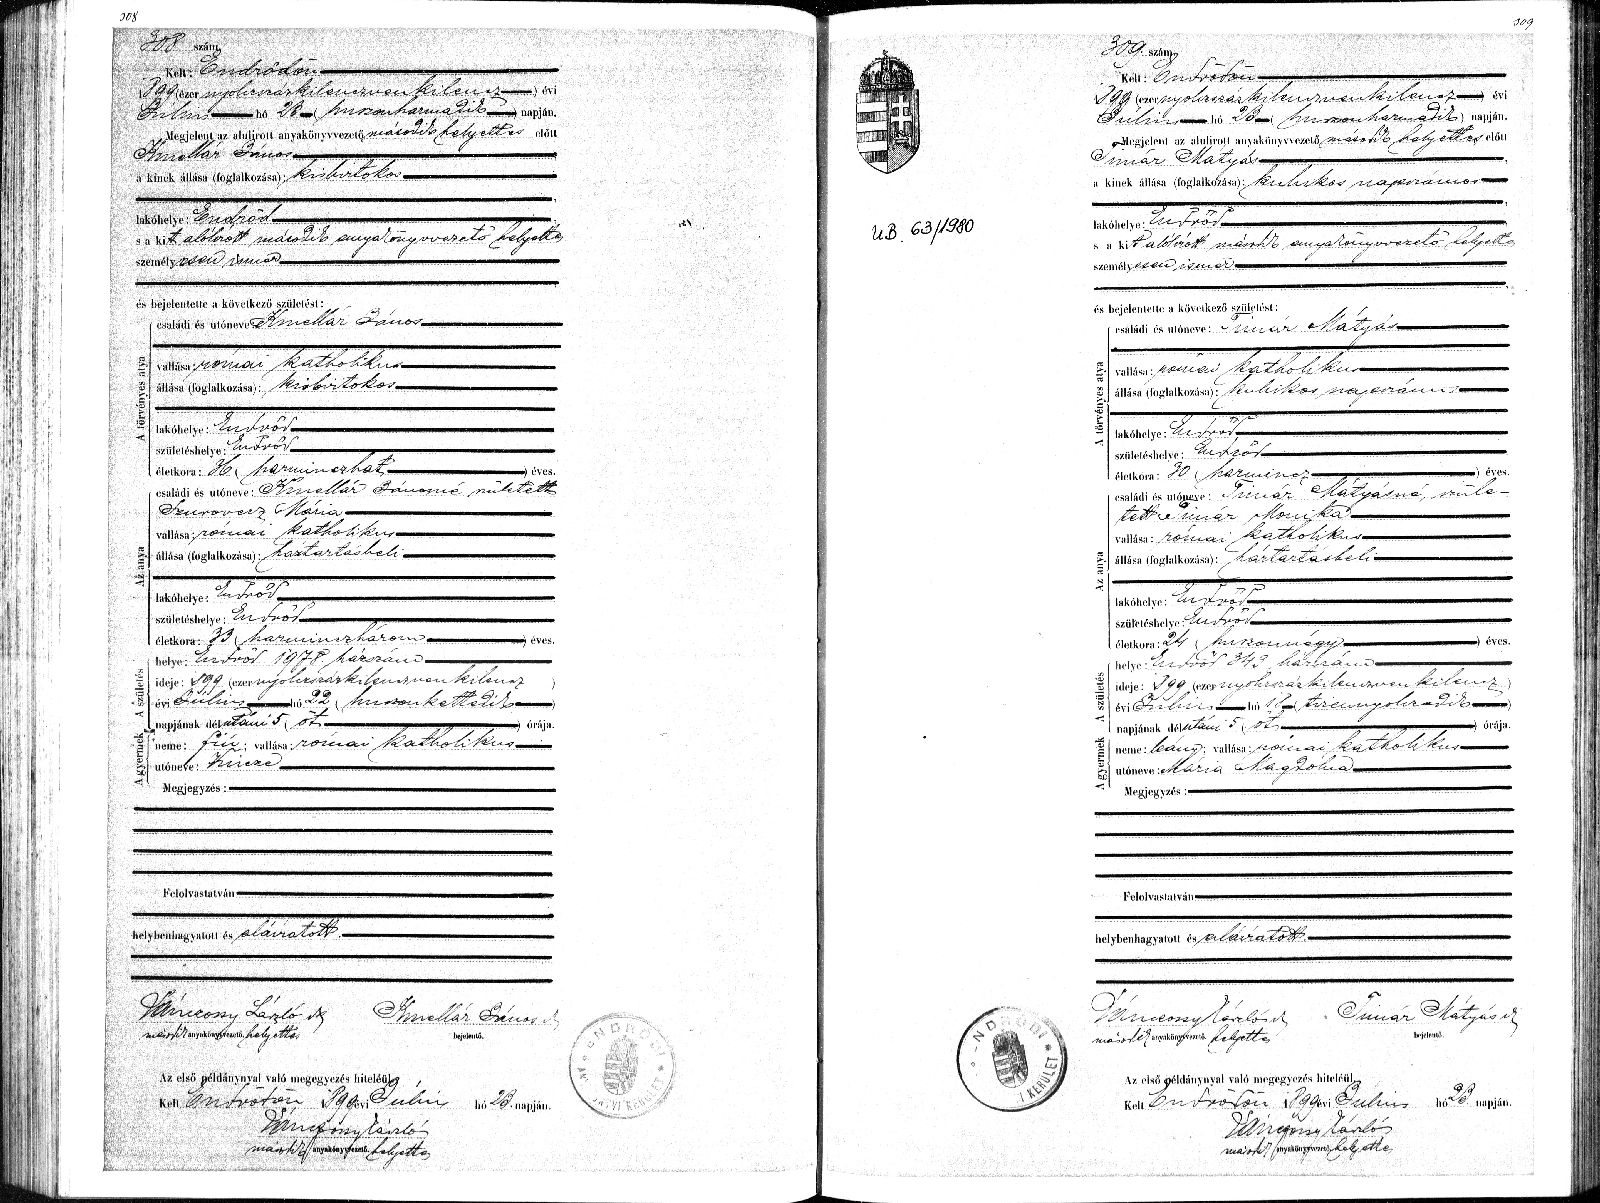 308
308 szám.
Kelt: Endrődön
1899 (ezer nyolczszázkilenczvenkilencz) évi
Julius hó 23 (huszonharmadik) napján.
Megjelent az alulirott anyakönyvvezető második helyettes előtt
Kmellár János
a kinek állása (foglalkozása): kisbirtokos
lakóhelye: Endrőd
s a kit alólirott második anyakönyvvezető helyettes
személyesen ismer
és bejelentette a következő születést:
A törvényes atya
családi és utóneve Kmellár János
vallása: római katholikus
állása (foglalkozása): kisbirtokos
lakóhelye: Endrőd
születéshelye: Endrőd
életkora: 36 (harminczhat) éves.
Az anya
családi és utóneve: Kmellár Jánosné született
Szurovecz Mária
vallása: római katholikus
állása (foglalkozása): háztartásbeli
lakóhelye: Endrőd
születéshelye: Endrőd
életkora: 33 (harminczhárom) éves.
A születés
helye: Endrőd 1978 házszám
ideje: 1899 (ezer nyolczszázkilenczvenkilencz)
évi Julius hó 22 (huszonkettedik)
napjának délutáni 5 (öt) órája.
A gyermek
neme: fiú; vallása: római katholikus
utóneve: Vincze
Megjegyzés:
Felolvastatván
helybenhagyatott és aláiratott.
Vánczony László sk Kmellár János sk
második anyakönyvvezető. helyettes bejelentő.
Az első példánynyal való megegyezés hiteléül
Kelt Endrődön 1899 évi Julius hó 23. napján.
Vánczony László
második anyakönyvvezető. helyettes
ENDRŐDI
KERÜLET
309
U.B. 63/1980
309 szám.
Kelt: Endrődön
1899 (ezer nyolczszázkilenczvenkilencz) évi
Julius hó 23 (huszonharmadik) napján.
Megjelent az alulirott anyakönyvvezető második helyettes előtt
Timár Mátyás
a kinek állása (foglalkozása): kubikos napszámos
lakóhelye: Endrőd
s a kit alólirott második anyakönyvvezető helyettes
személyesen ismer
és bejelentette a következő születést:
A törvényes atya
családi és utóneve: Timár Mátyás
vallása: római katholikus
állása (foglalkozása): kubikos napszámos
lakóhelye: Endrőd
születéshelye: Endrőd
életkora: 30 (harmincz) éves.
Az anya
családi és utóneve: Timár Mátyásné, szüle-
tett Timár Monika
vallása: római katholikus
állása (foglalkozása): háztartásbeli
lakóhelye: Endrőd
születéshelye: Endrőd
életkora: 24 (huszonnégy) éves.
A születés
helye: Endrőd 343 házszám
ideje: 1899 (ezer nyolczszázkilenczvenkilencz)
évi Julius hó 18 (tizennyolczadik)
napjának délutáni 5 (öt) órája.
A gyermek
neme: leány; vallása: római katholikus
utóneve: Mária Magdolna
Megjegyzés:
Felolvastatván
helybenhagyatott és aláiratott.
Vánczony László sk Timár Mátyás sk
második anyakönyvvezető. helyettes bejelentő.
Az első példánynyal való megegyezés hiteléül
Kelt Endrődön 1899 évi Julius hó 23 napján.
Vánczony László
második anyakönyvvezető. helyettes
ENDRŐDI
KERÜLET